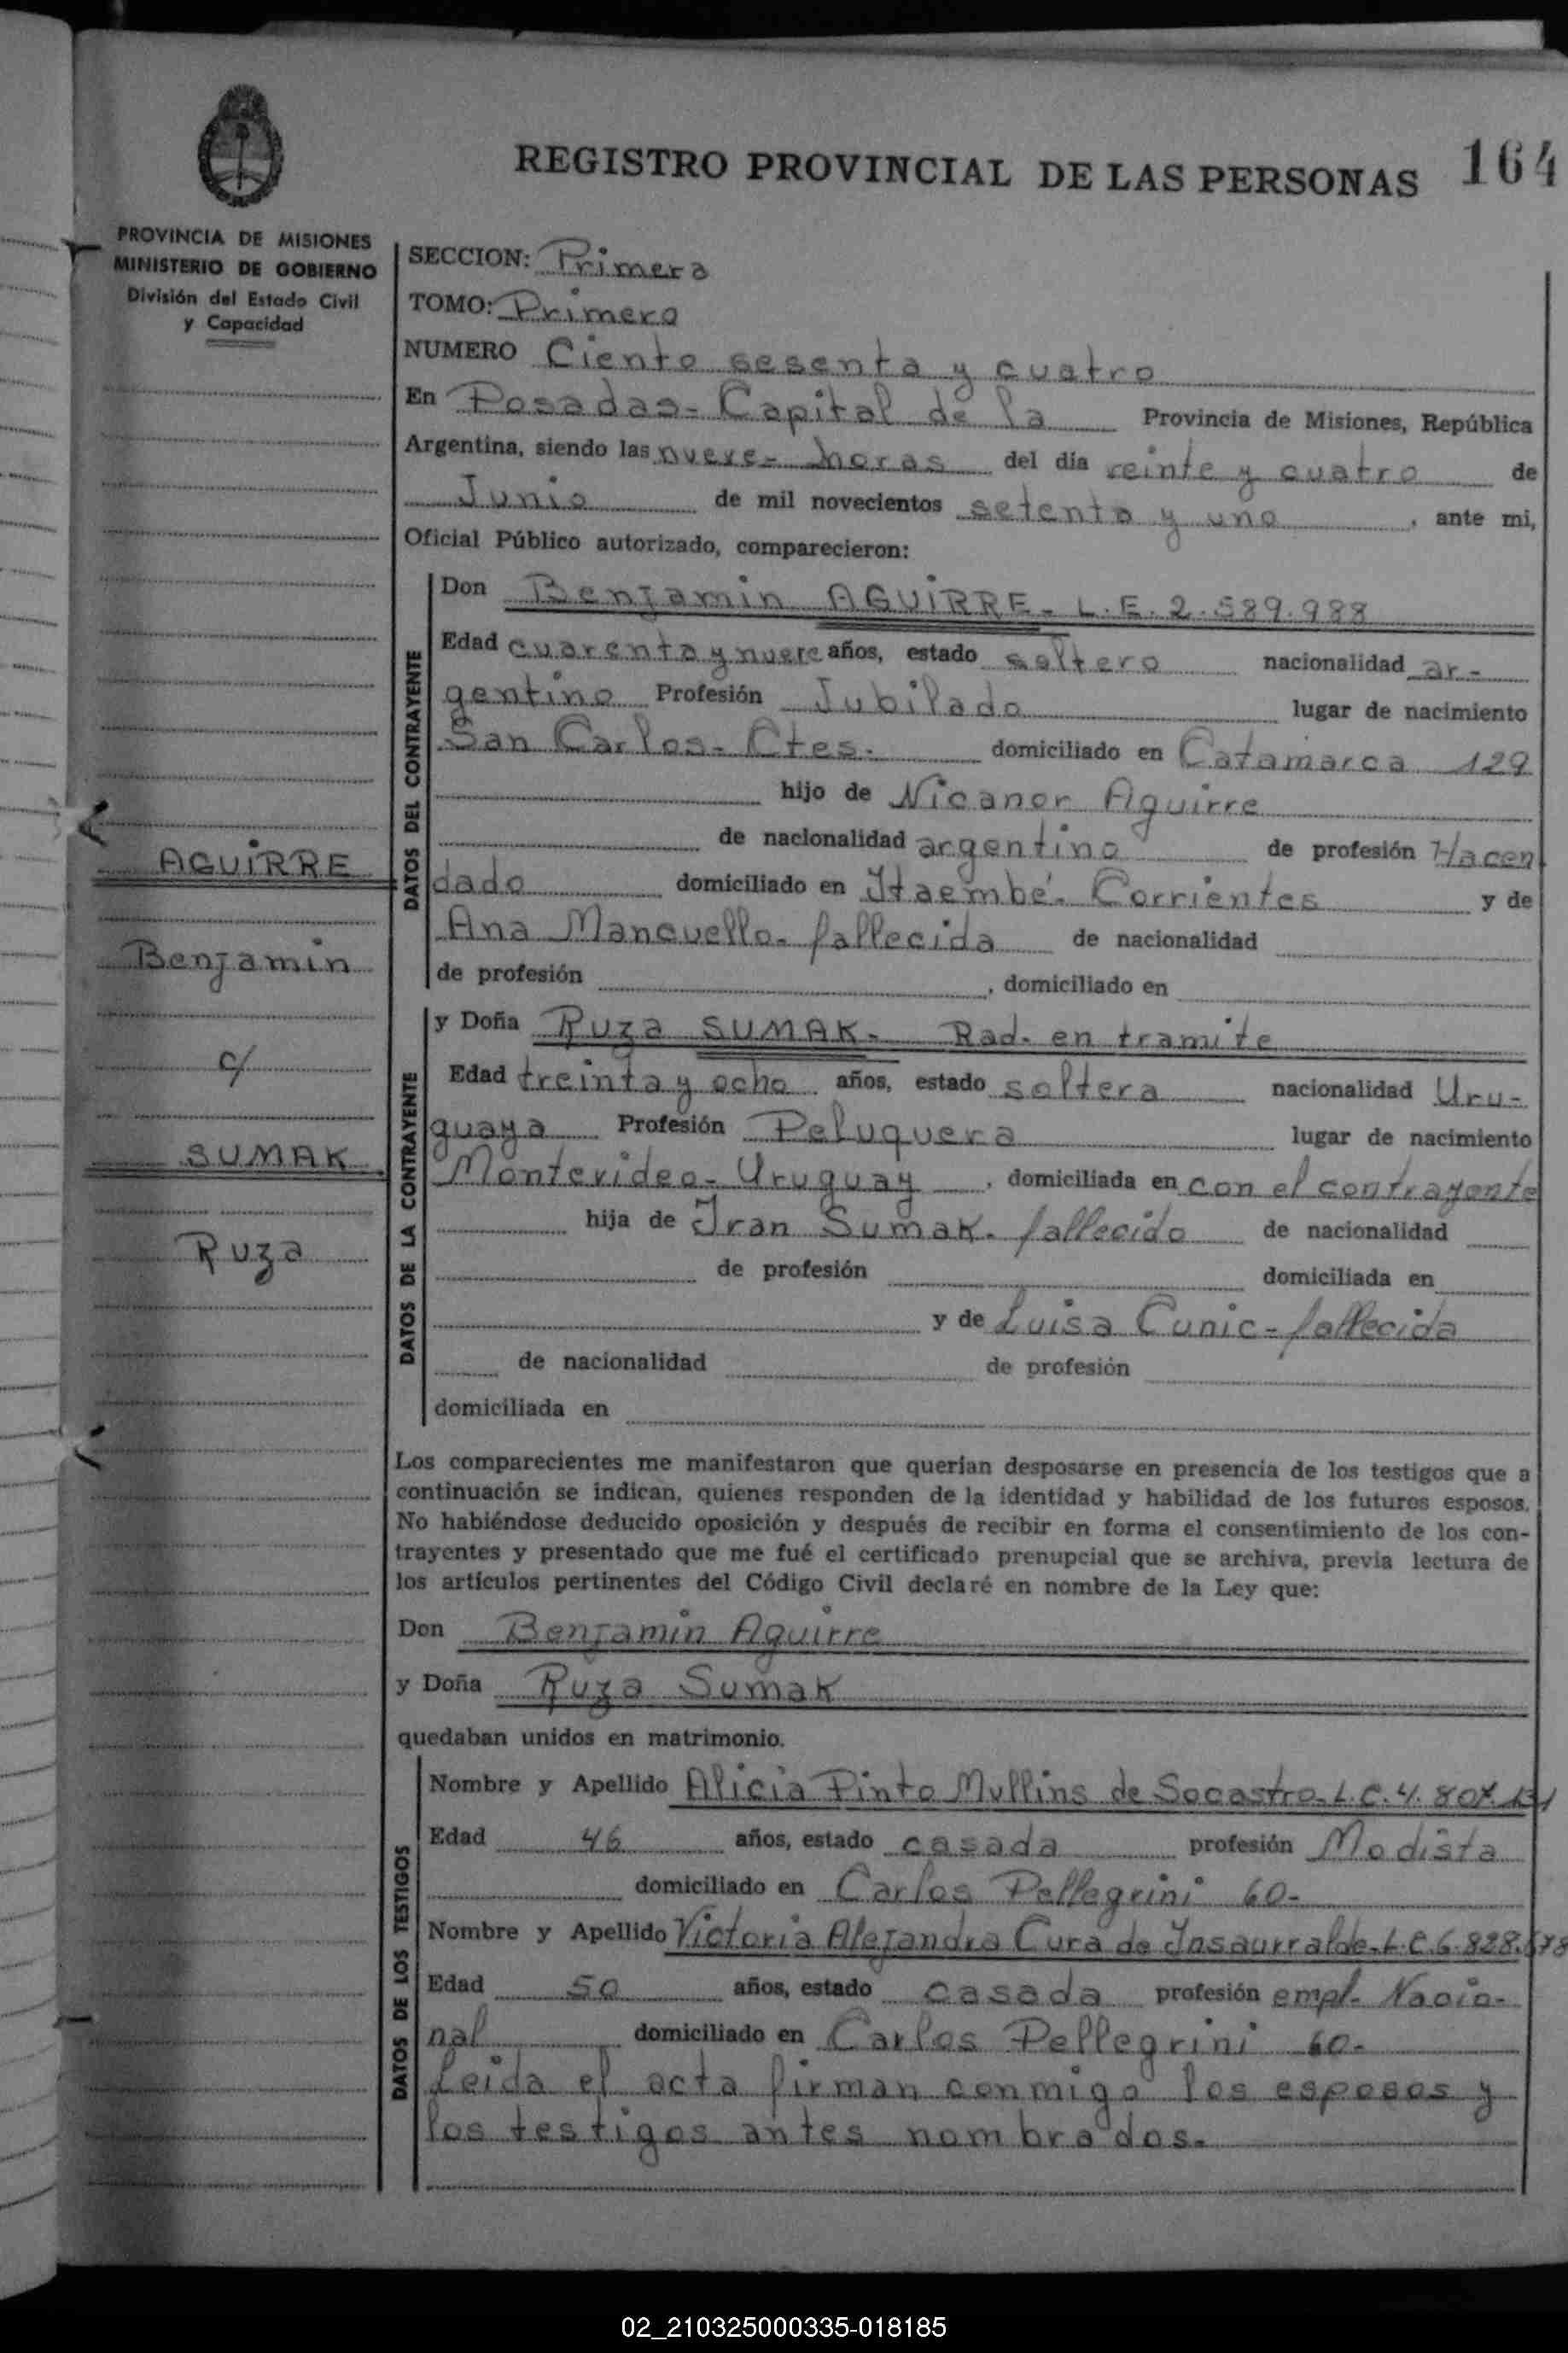 REGISTRO PROVINCIAL DE LAS PERSONAS 164
PROVINCIA DE MISIONES
MINISTERIO DE GOBIERNO
División del Estado Civil
y Capacidad
AGUIRRE
Benjamin
c/
SUMAK
Ruza
SECCION: Primera
TOMO: Primero
NUMERO Ciento sesenta y cuatro
En Posadas- Capital de la Provincia de Misiones, República
Argentina, siendo las nueve- horas del día veinte y cuatro de
Junio de mil novecientos setenta y uno, ante mi,
Oficial Público autorizado, comparecieron:
DATOS DEL CONTRAYENTE
Don Benjamin AGUIRRE- L.E. 2.589.988
Edad cuarenta y nueve años, estado soltero nacionalidad ar-
gentino Profesión Jubilado lugar de nacimiento
San Carlos- Ctes. domiciliado en Catamarca 129
hijo de Nicanor Aguirre
de nacionalidad argentino de profesión Hacen
dado domiciliado en Itaembé- Corrientes y de
Ana Mancuello- fallecida de nacionalidad
de profesión , domiciliado en
DATOS DE LA CONTRAYENTE
y Doña Ruza SUMAK- Rad. en tramite
Edad treinta y ocho años, estado soltera nacionalidad Uru-
guaya Profesión Peluquera lugar de nacimiento
Montevideo- Uruguay, domiciliada en con el contrayente
hija de Iran Sumak- fallecido de nacionalidad
de profesión domiciliada en
y de Luisa Cunic- fallecida
de nacionalidad de profesión
domiciliada en
Los comparecientes me manifestaron que querian desposarse en presencia de los testigos que a
continuación se indican, quienes responden de la identidad y habilidad de los futuros esposos.
No habiéndose deducido oposición y después de recibir en forma el consentimiento de los con-
trayentes y presentado que me fué el certificado prenupcial que se archiva, previa lectura de
los artículos pertinentes del Código Civil declaré en nombre de la Ley que:
Don Benjamin Aguirre
y Doña Ruza Sumak
quedaban unidos en matrimonio.
DATOS DE LOS TESTIGOS
Nombre y Apellido Alicia Pinto Mullins de Socastro- L.C. 4.807.
Edad 46 años, estado casada profesión Modista
domiciliado en Carlos Pellegrini 60-
Nombre y Apellido Victoria Alejandra Cura de Insaurralde- L.C. 6.828.
Edad 50 años, estado casada profesión empl. Nacio-
nal domiciliado en Carlos Pellegrini 60-
Leida el acta firman conmigo los esposos y
los testigos antes nombrados.
02_210325000335-018185